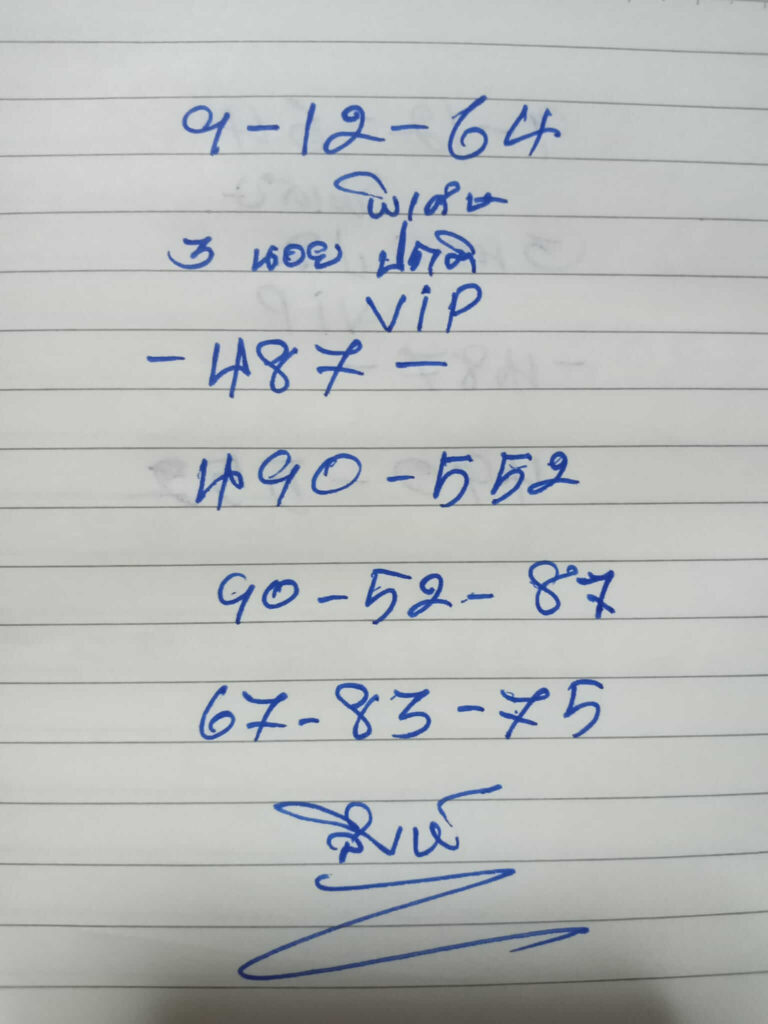 9-12-64
พิเศษ
3 นอย ปกติ
VIP
-487-
490-552
90-52-87
67-83-75
สิงห์